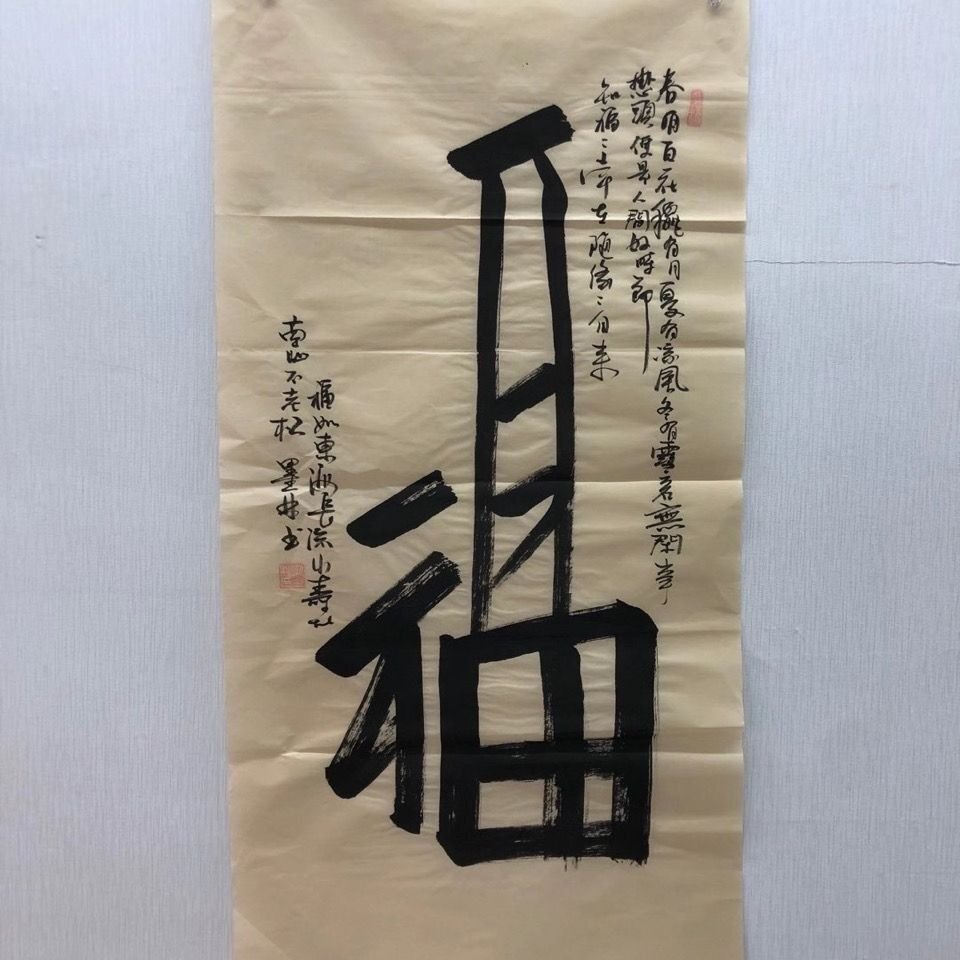 春有百花龝有月夏有凉風冬有雪若無閑事
掛心頭便是人間好時節
知福〻常在随缘〻自来
福
福如東海長流水壽比
南山不老松 墨林书